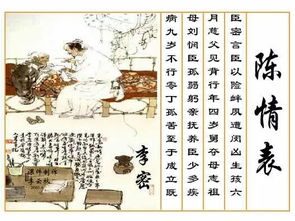 陈情表
臣密言臣以险衅夙遭闵凶生孩六
月慈父见背行年四岁舅夺母志祖
母刘悯臣孤弱躬亲抚养臣少多疾
病九岁不行零丁孤苦至于成立既
李密